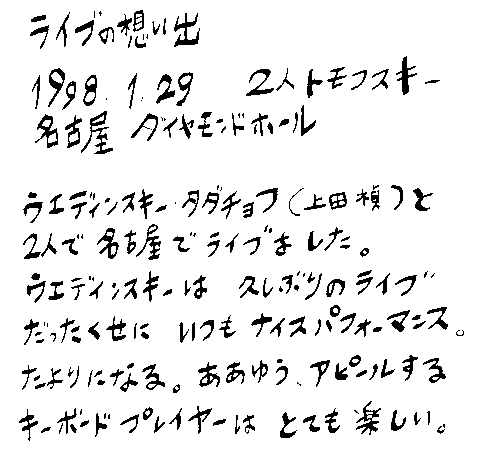 ライブの想い出
1998.1.29 2人トモフスキー
名古屋 ダイヤモンドホール
ウエディンスキー・タダチョフ(上田禎)と
2人で名古屋でライブました。
ウエディンスキーは 久しぶりのライブ
だったくせに いつもナイスパフォーマンス。
たよりになる。ああゆう、アピールする
キーボードプレイヤーは とても楽しい。